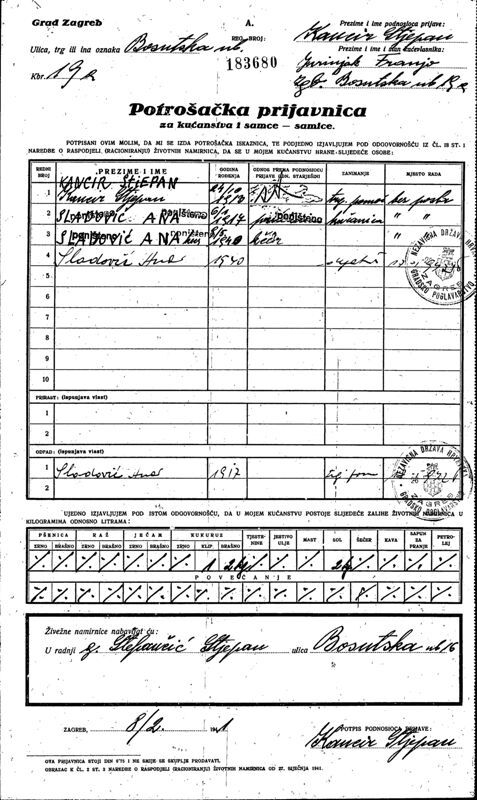 Grad Zagreb
A.
Prezime i ime podnosioca prijave:
Kancir Stjepan
Ulica, trg ili ina oznaka Bosutska ul.
REG. BROJ:
183680
Prezime i ime i stan kućevlasnika:
Jurinjak Franjo
Kbr. 19a
Zgb. Bosutska ul 19a
Potrošačka prijavnica
za kućanstva i samce — samice.
POTPISANI OVIM MOLIM, DA MI SE IZDA POTROŠAČKA ISKAZNICA, TE PODJEDNO IZJAVLJUJEM POD ODGOVORNOŠĆU IZ ČL. 18 ST. 1
NAREDBE O RASPODJELI (RACIONIRANJU) ŽIVOTNIH NAMIRNICA, DA SE U MOJEM KUĆANSTVU HRANE SLIJEDEĆE OSOBE:
REDNI BROJ PREZIME I IME GODINA ROĐENJA ODNOS PREMA PODNOSIOCU PRIJAVE (ODN. STARJEŠINI) ZANIMANJE MJESTO RADA
KANCIR STJEPAN
1 Kancir Stjepan
2 SLADOVIĆ ANA poništeno 1917 poništeno kućanica " "
3 SLADOVIĆ ANA poništeno 1940 kćer "
4 Sladović Ana 1940
5
6
7
8
9
10
NEZAVISNA DRŽAVA HRVATSKA
GRADSKO POGLAVARSTVO
ZAGREB
PRIRAST: (ispunjava vlast)
1
2
OTPAD: (ispunjava vlast)
1 Sladović Ana 1917
2
NEZAVISNA DRŽAVA HRVATSKA
ZAGREB
UJEDNO IZJAVLJUJEM POD ISTOM ODGOVORNOŠĆU, DA U MOJEM KUĆANSTVU POSTOJE SLIJEDEĆE ZALIHE ŽIVOTNIH NAMIRNICA U
KILOGRAMIMA ODNOSNO LITRAMA:
PŠENICA RAŽ JEČAM KUKURUZ TJESTENINE JESTIVO ULJE MAST SOL ŠEĆER KAVA SAPUN ZA PRANJE PETROLEJ
ZRNO BRAŠNO ZRNO BRAŠNO ZRNO BRAŠNO ZRNO KLIP BRAŠNO
POVEĆANJE
Živežne namirnice nabavljat ću:
U radnji g. Stefančić Stjepan ulica Bosutska ul 16
ZAGREB, 8/2. 1941
POTPIS PODNOSIOCA PRIJAVE:
Kancir Stjepan
OVA PRIJAVNICA STOJI DIN 0'75 I NE SMIJE SE SKUPLJE PRODAVATI.
OBRAZAC K ČL. 2 ST. 3 NAREDBE O RASPODJELI (RACIONIRANJU) ŽIVOTNIH NAMIRNICA OD 27. SIJEČNJA 1941.